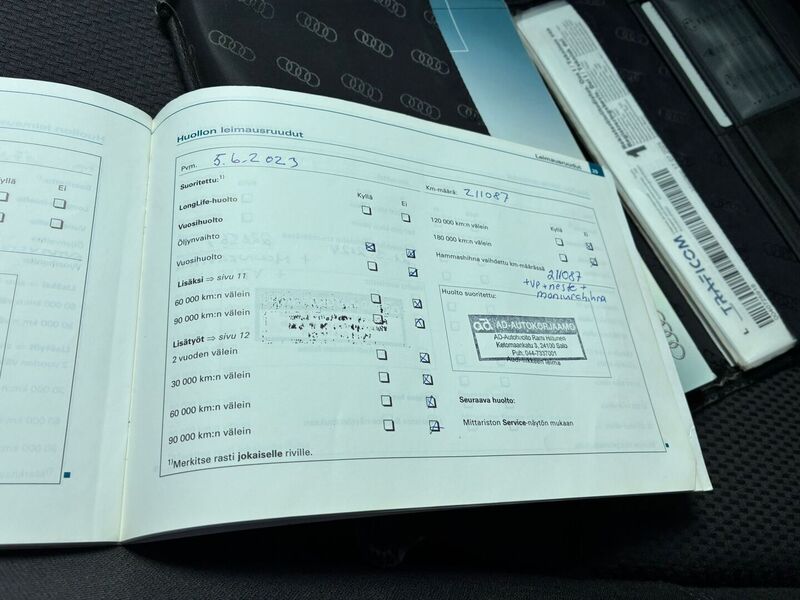 Huollon leimausruudut
Kyllä
Ei
Huollon leimausruudut
Leimausruudut
29
Pvm. 5.6.2023
Km-määrä: 211087
Suoritettu:1)
Kyllä
Ei
LongLife-huolto
Vuosihuolto
Öljynvaihto
Vuosihuolto
Lisäksi ⇒ sivu 11
60 000 km:n välein
90 000 km:n välein
Lisätyöt ⇒ sivu 12
2 vuoden välein
30 000 km:n välein
60 000 km:n välein
90 000 km:n välein
1)Merkitse rasti jokaiselle riville.
Kyllä
Ei
120 000 km:n välein
180 000 km:n välein
Hammashihna vaihdettu km-määrässä
211087
+vp+neste+
moniurahihna
Huolto suoritettu:
ad. AD-AUTOKORJAAMO
AD-Autohuolto Rami Hiitunen
Ketomaankatu 3, 24100 Salo
Puh. 044-7337001
Audi-liikkeen leima
Seuraava huolto:
Mittariston Service-näytön mukaan
1
TRAFICOM